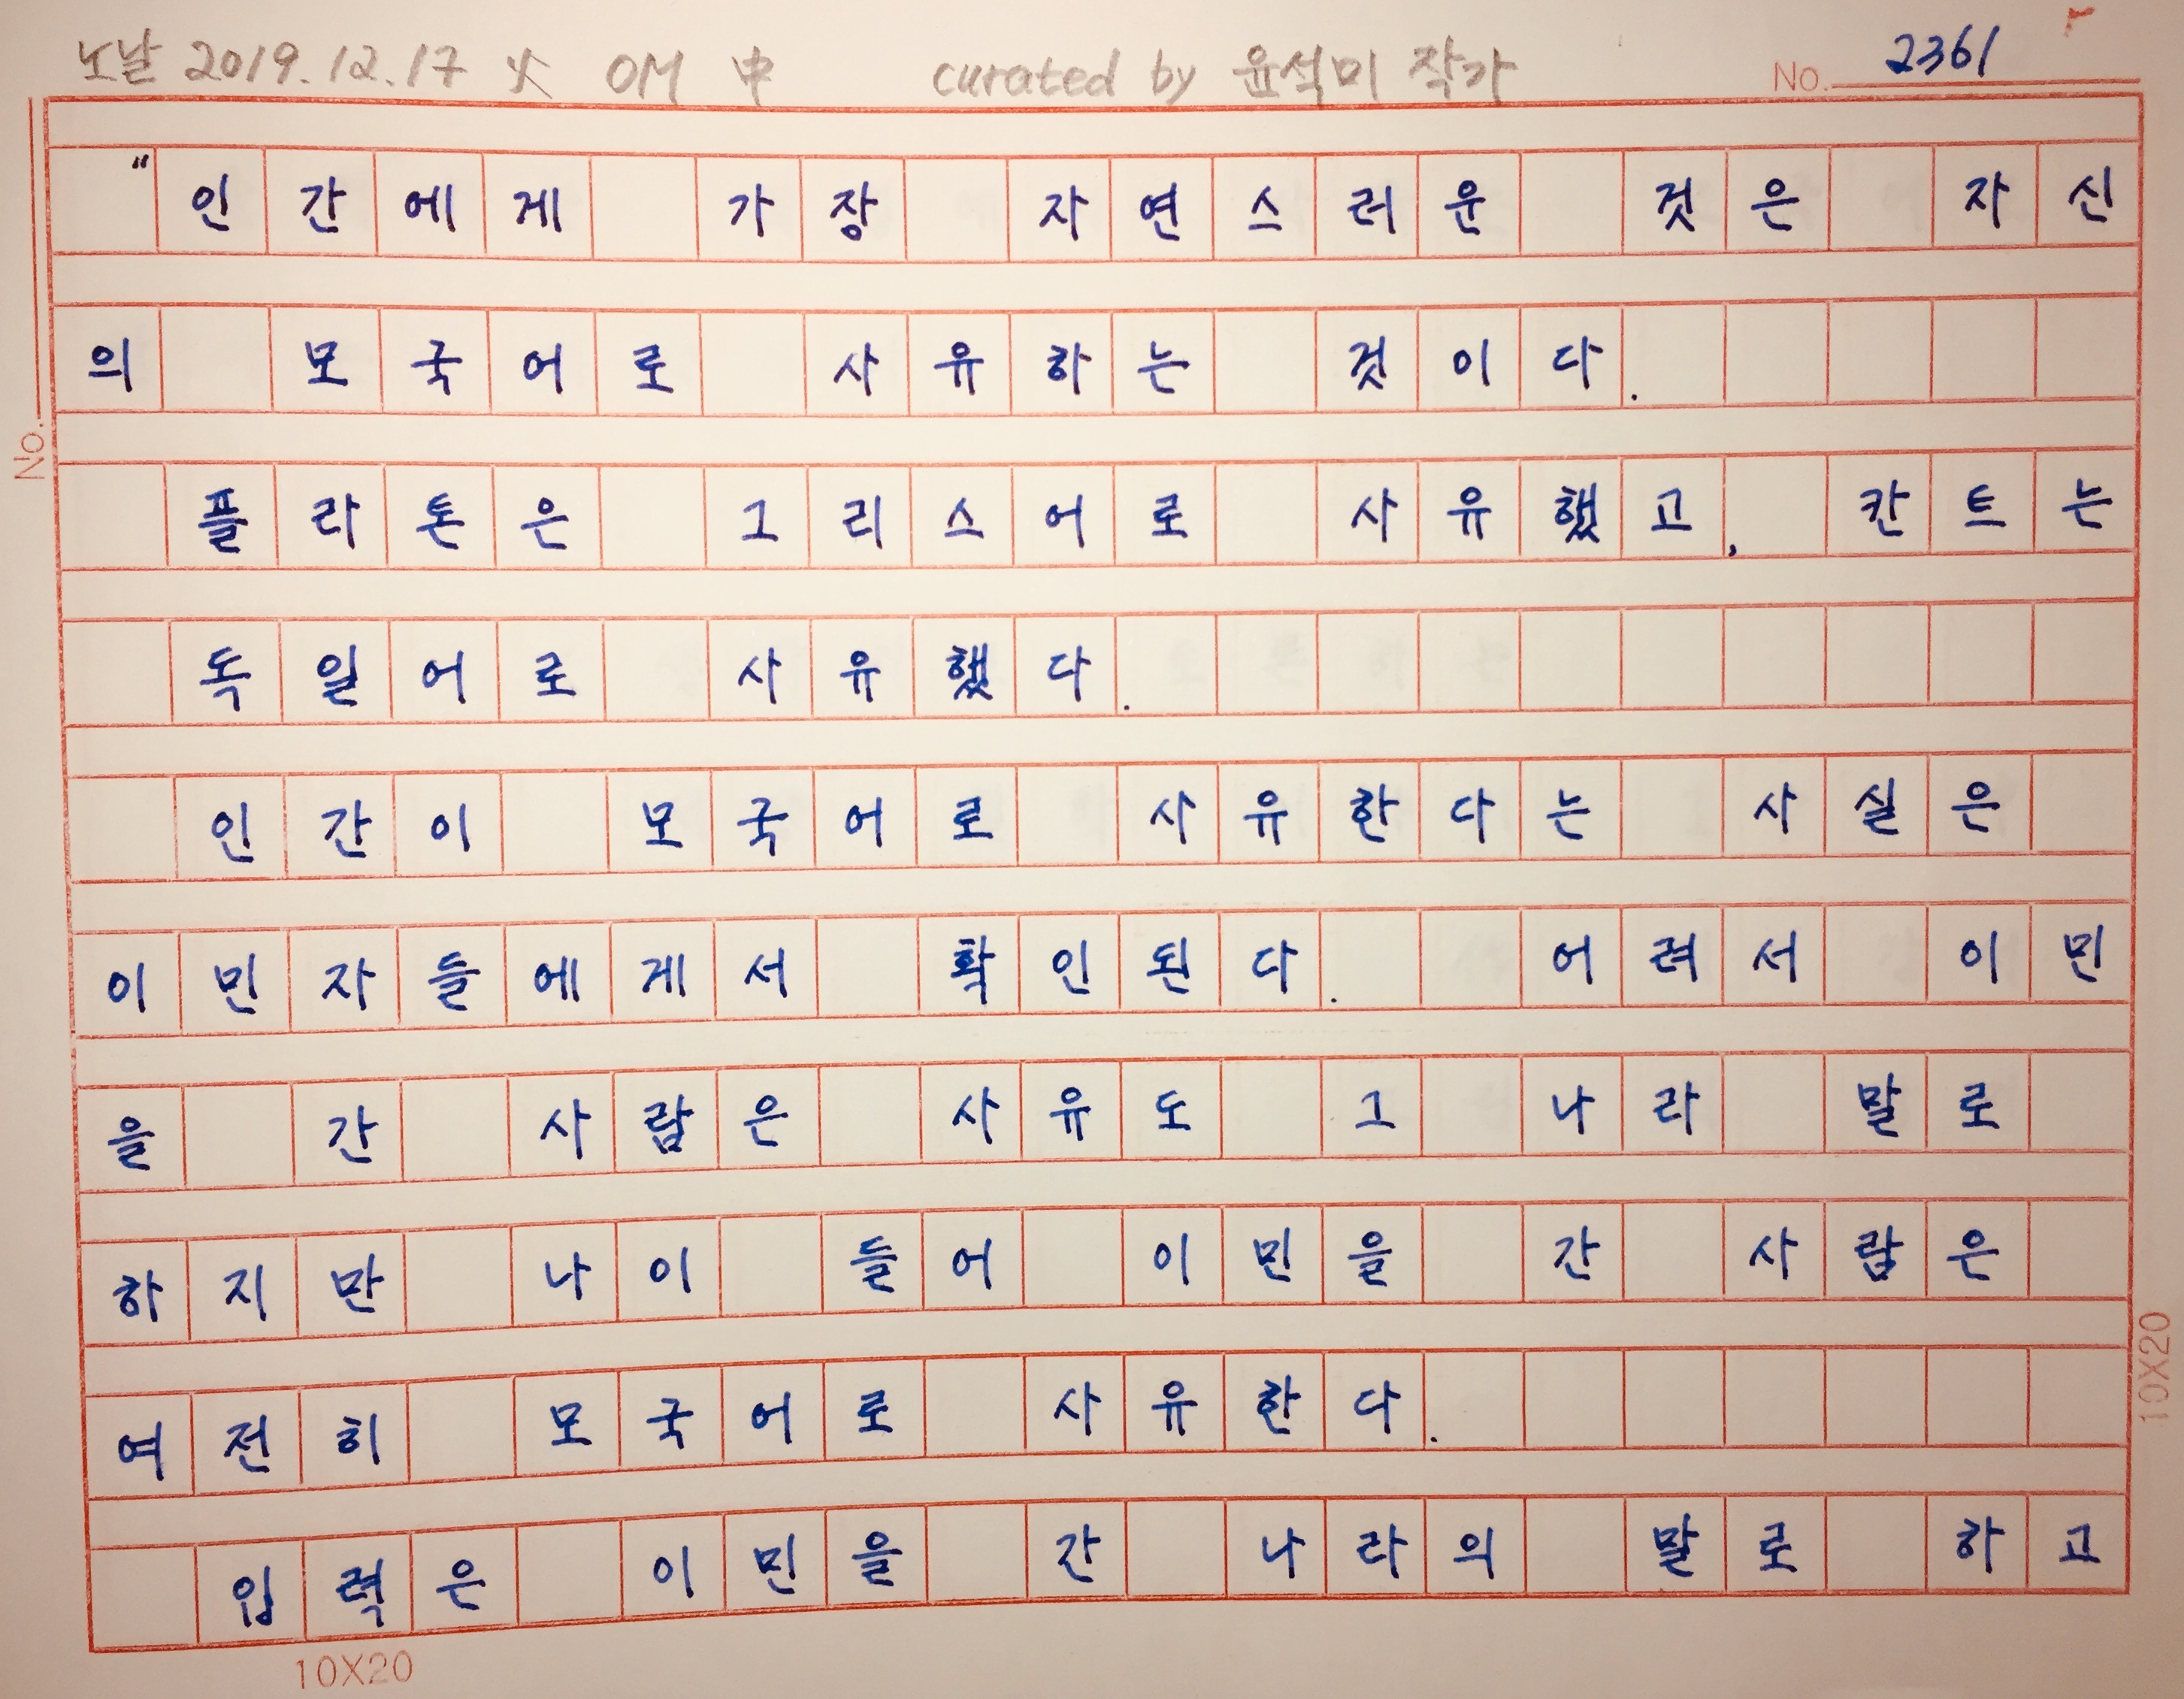 노날 2019.12.17 火 OM 申 curated by 윤석미 작가 No. 2361
"인간에게 가장 자연스러운 것은 자신
의 모국어로 사유하는 것이다.
플라톤은 그리스어로 사유했고, 칸트는
독일어로 사유했다.
인간이 모국어로 사유한다는 사실은
이민자들에게서 확인된다. 어려서 이민
을 간 사람은 사유도 그 나라 말로
하지만 나이 들어 이민을 간 사람은
여전히 모국어로 사유한다.
입력은 이민을 간 나라의 말로 하고
No.
10X20
10X20